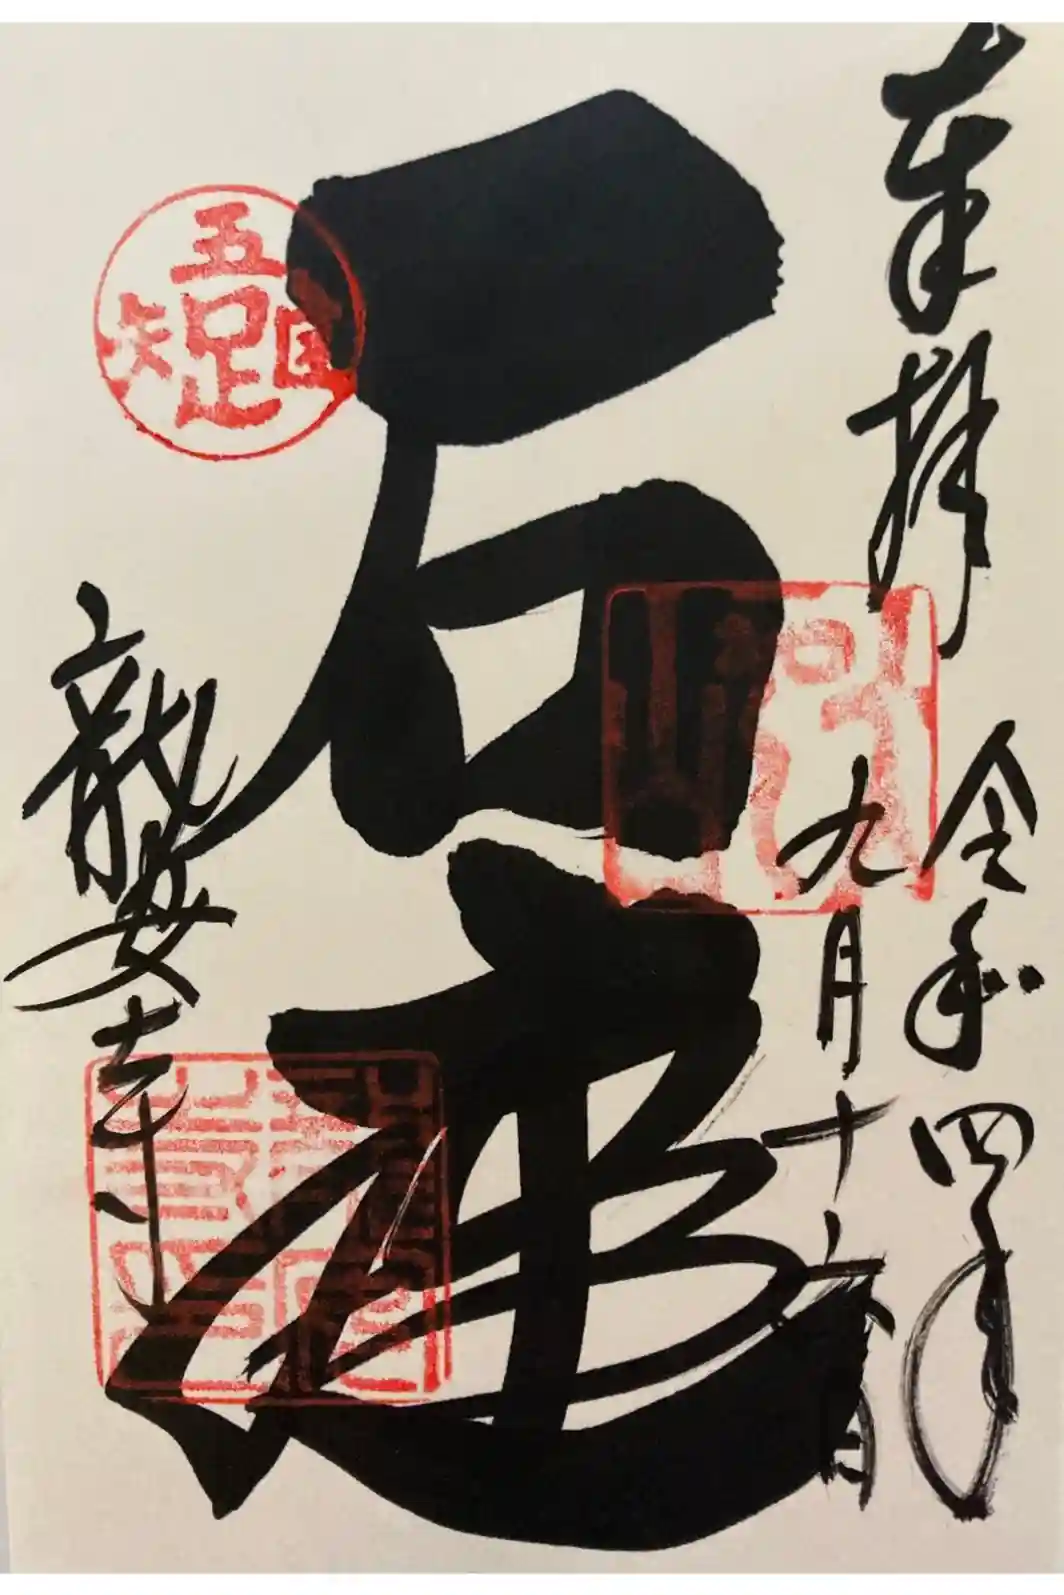 奉拝
令和四年
九月十六日
石庭
吾唯足知
龍安寺